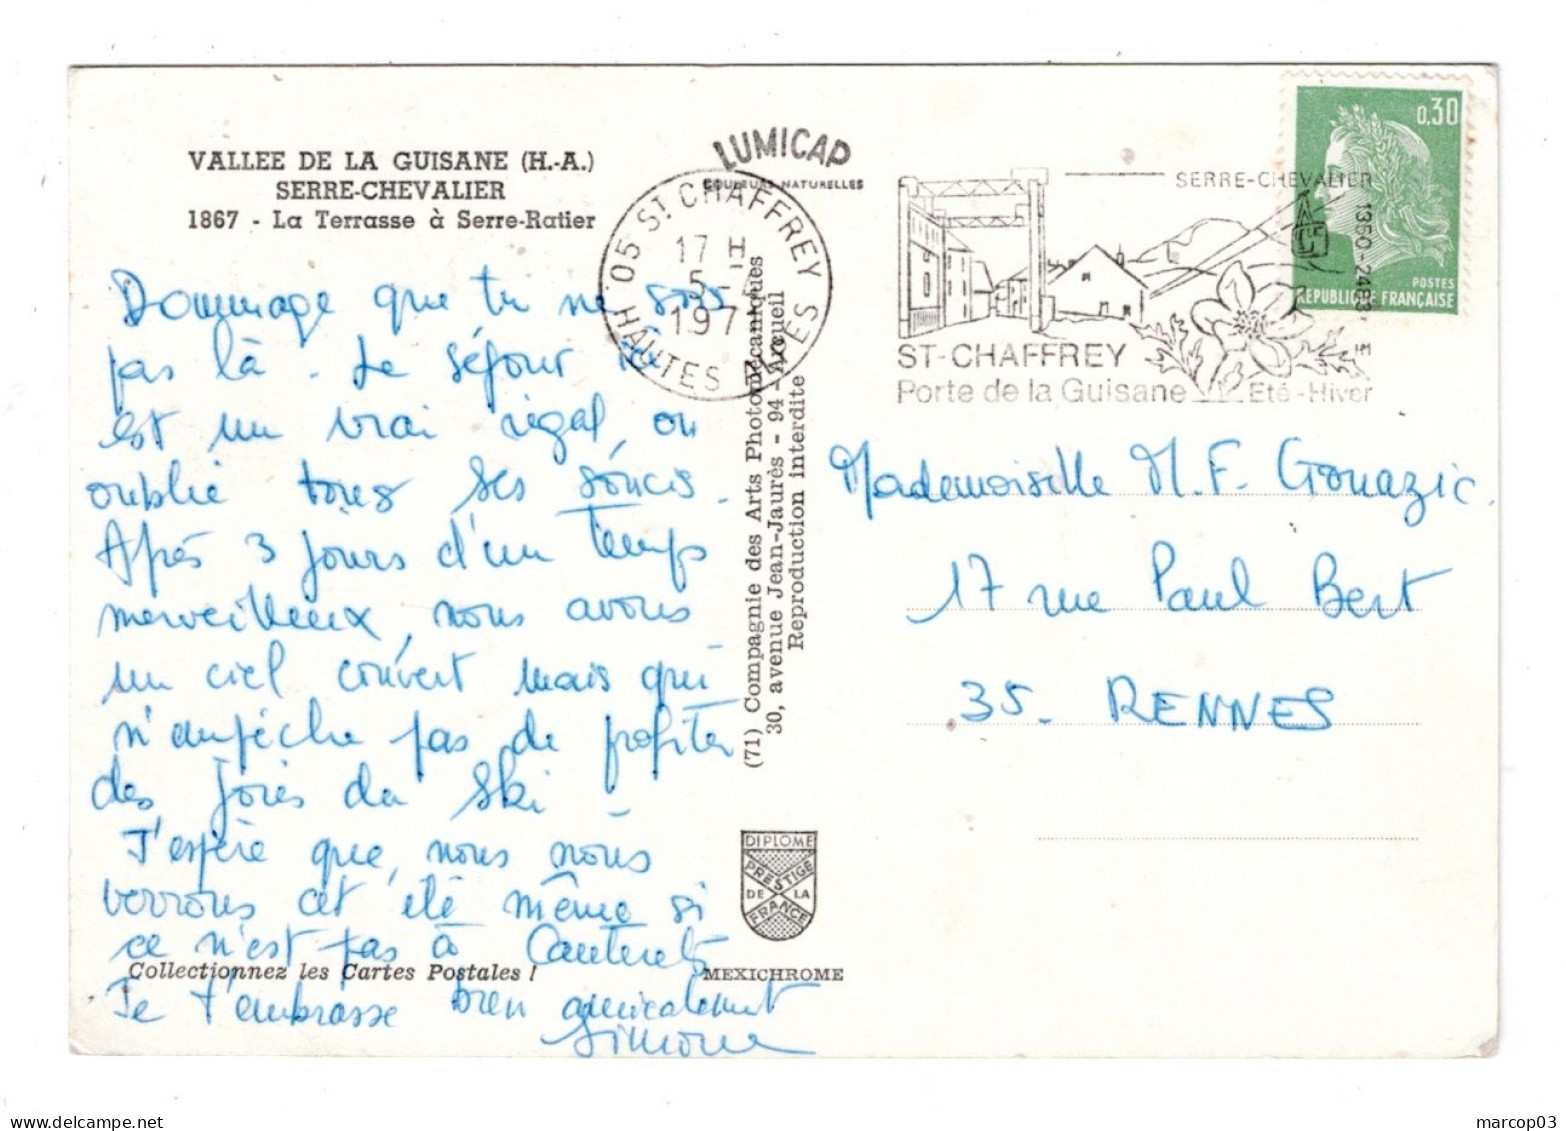 VALLEE DE LA GUISANE (H.-A.)
SERRE-CHEVALIER
1867 - La Terrasse à Serre-Ratier
Dommage que tu ne sois
pas là. Le séjour ici
est un vrai régal, on
oublie tous ses soucis.
Après 3 jours d'un temps
merveilleux, nous avons
un ciel couvert mais qui
n'empêche pas de profiter
des joies du ski.
J'espère que, nous nous
verrons cet été même si
ce n'est pas à Cauterets
Collectionnez les Cartes Postales !
Je t'embrasse bien amicalement
Simone
LUMICAP
COULEURS NATURELLES
05 ST CHAFFREY
17 H
5 -
197
HAUTES ALPES
(71) Compagnie des Arts Photomécaniques
30, avenue Jean-Jaurès - 94 - Arcueil
Reproduction interdite
DIPLOME
PRESTIGE
DE LA
FRANCE
MEXICHROME
SERRE-CHEVALIER
1350-2483
ST-CHAFFREY
Porte de la Guisane Eté-Hiver
0,30
POSTES
REPUBLIQUE FRANÇAISE
Mademoiselle M.F. Gouazic.
17 rue Paul Bert
35. RENNES
marcop03